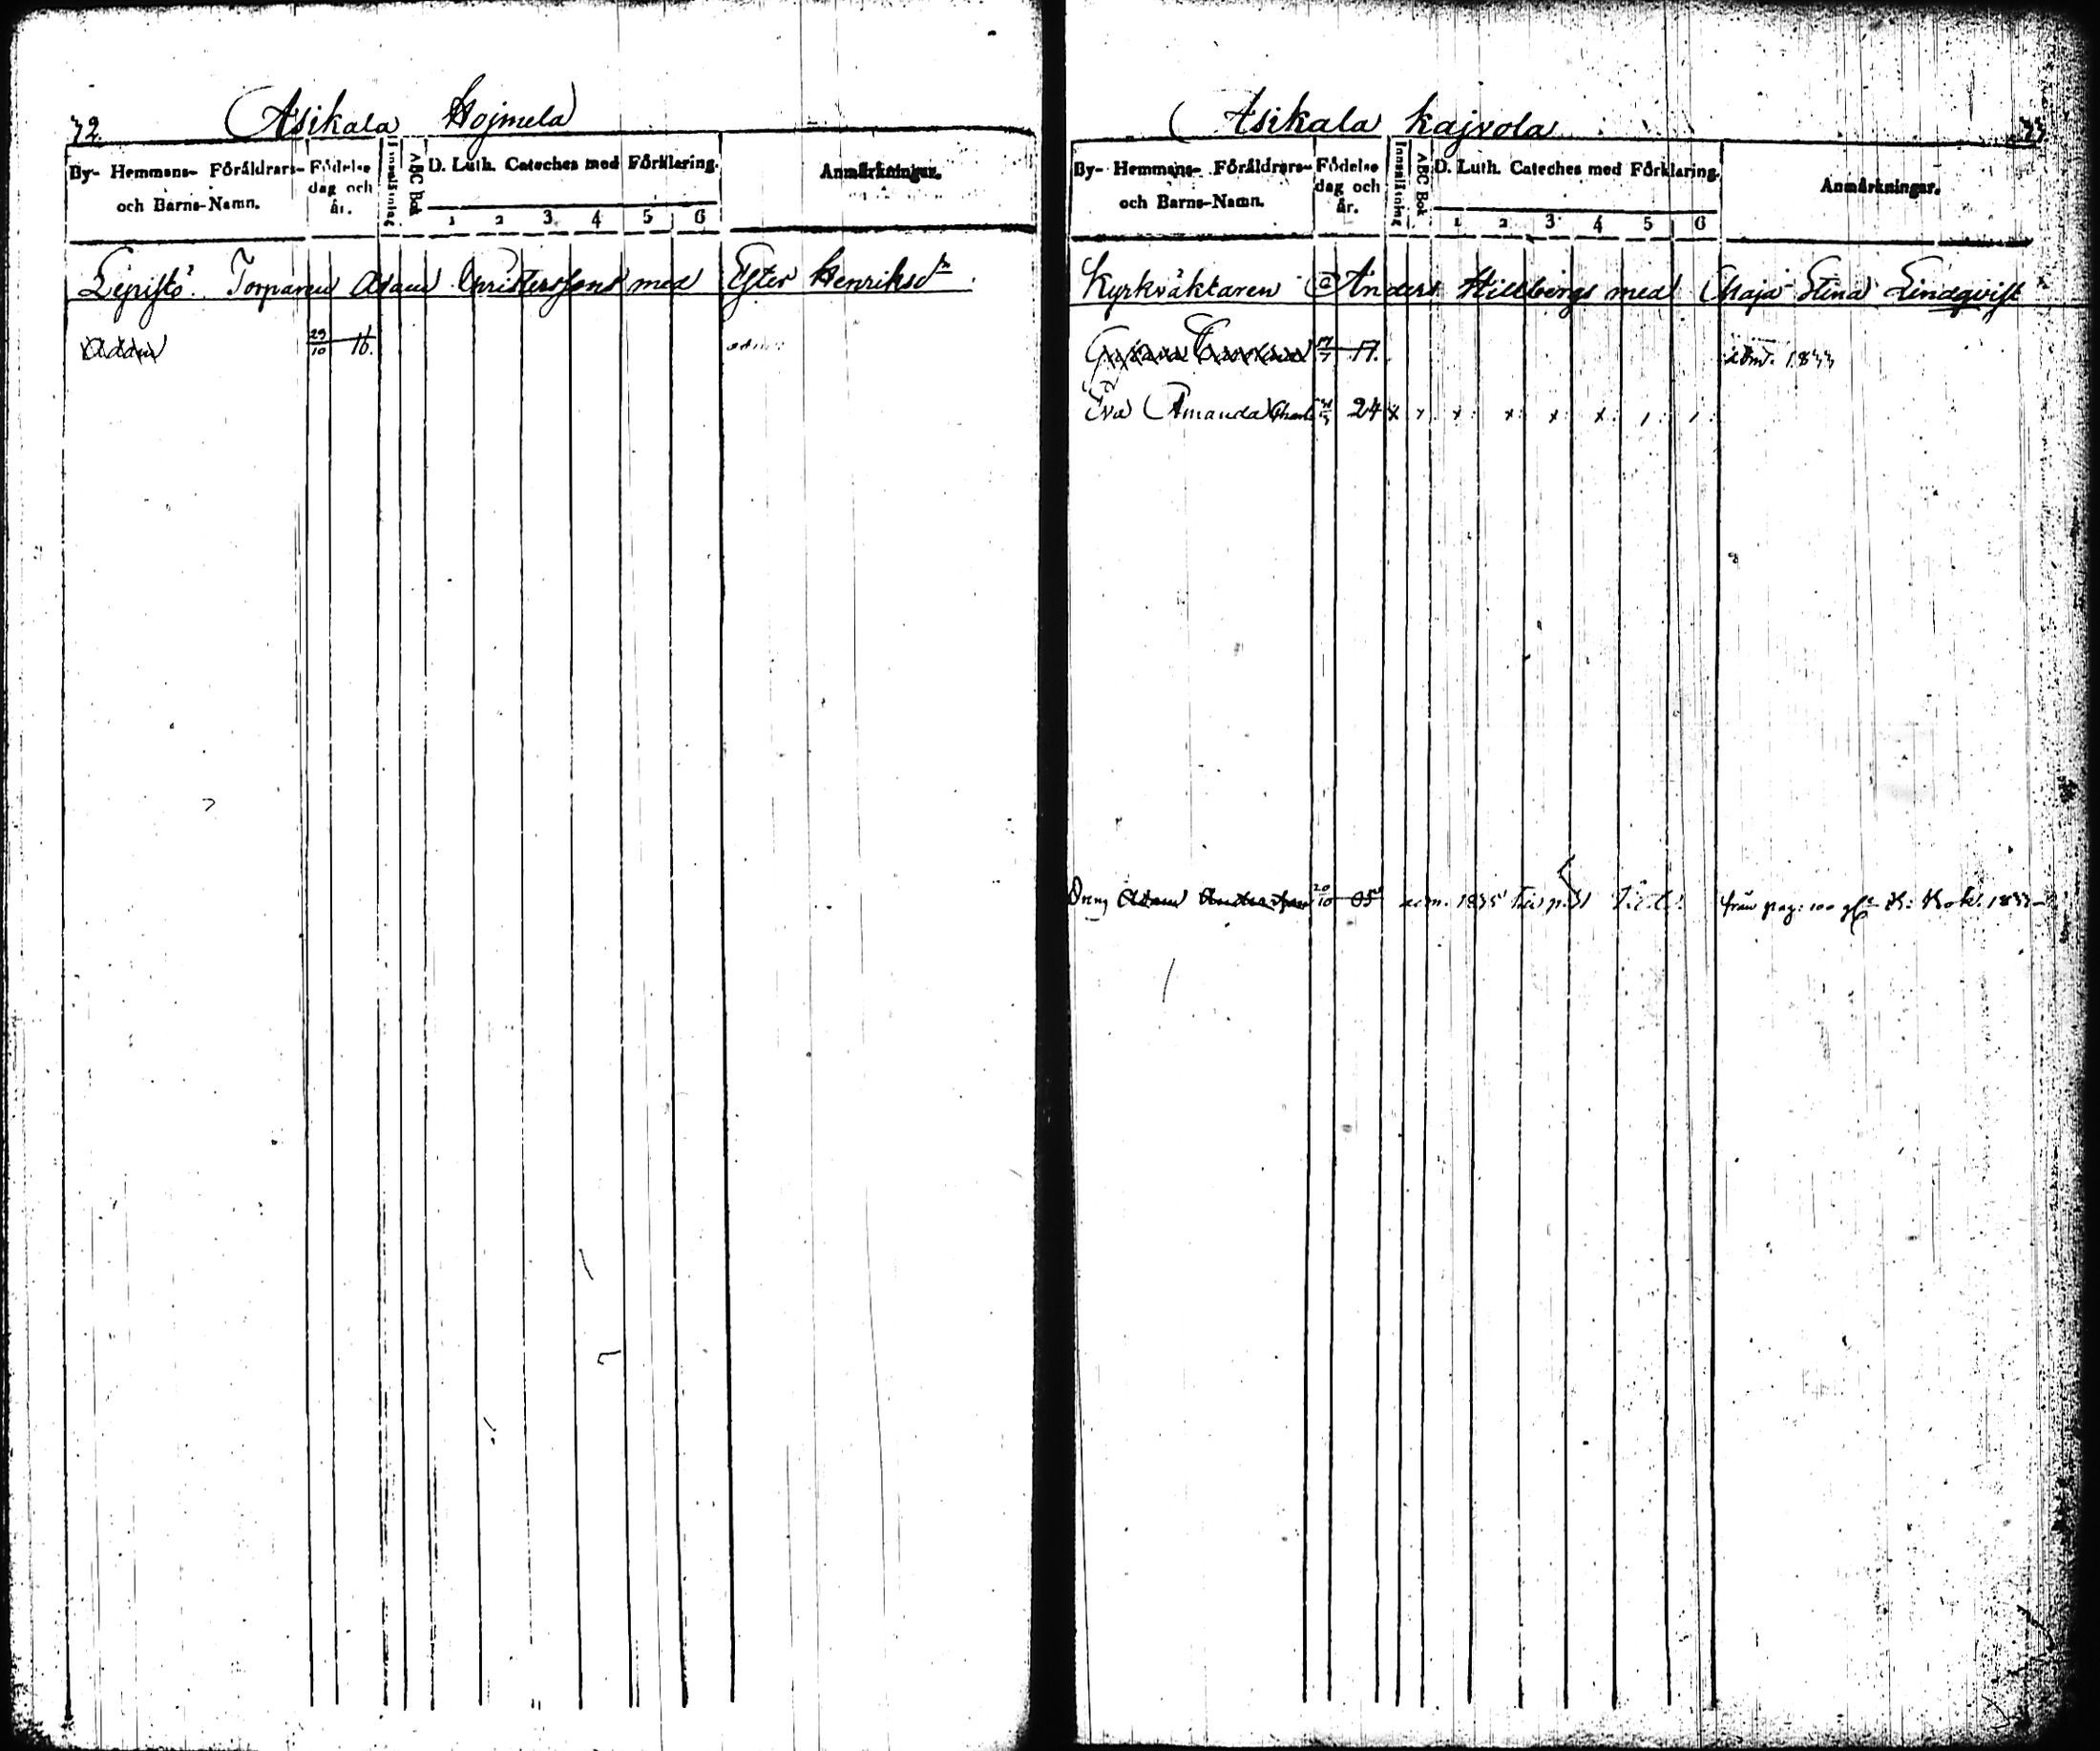 72. Asikala Hojmela
By- Hemmans- Föräldrars- och Barns-Namn. Födelse dag och år. Innanläsning ABC Bok D. Luth. Cateches med Förklaring. 1 2 3 4 5 6 Anmärkningar.
Lepistö. Torparen Adam Christerssons med Ester Henriksdr
Adam 29/10 16. adm.
Asikala Kajvola 73.
By- Hemmans- Föräldrars- och Barns-Namn. Födelse dag och år. Innanläsning ABC Bok D. Luth. Cateches med Förklaring. 1 2 3 4 5 6 Anmärkningar.
Kyrkväktaren Anders Hillbergs med Maja Stina Lindqvist
17. adm. 1833
Eva Amanda Charl. 24 x x x x x x / /
Dreng Adam Andersson 20/10 05 adm. 1835 från pag: 100 K. Bok. 1833